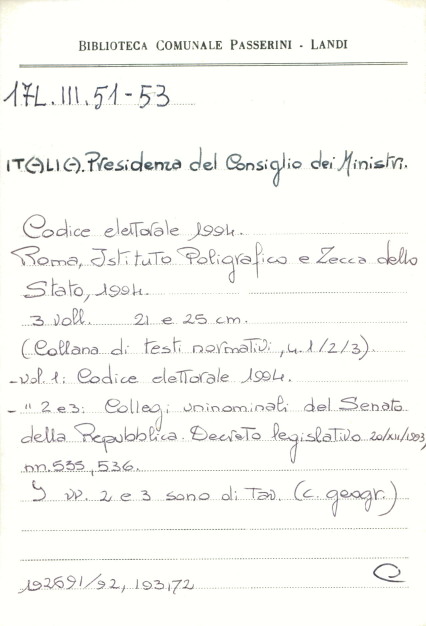 BIBLIOTECA COMUNALE PASSERINI - LANDI
17L.III.51-53
ITALIA. Presidenza del Consiglio dei Ministri.
Codice elettorale 1994.
Roma, Istituto Poligrafico e Zecca dello
Stato, 1994.
3 voll. 21 e 25 cm.
(Collana di testi normativi, n. 1/2/3).
- vol. 1: Codice elettorale 1994.
- " 2 e 3: Collegi uninominali del Senato
della Repubblica. Decreto legislativo 20/XII/1993,
nn. 535, 536.
I vv. 2 e 3 sono di Tav. (c. geogr.)
192691/92, 193172